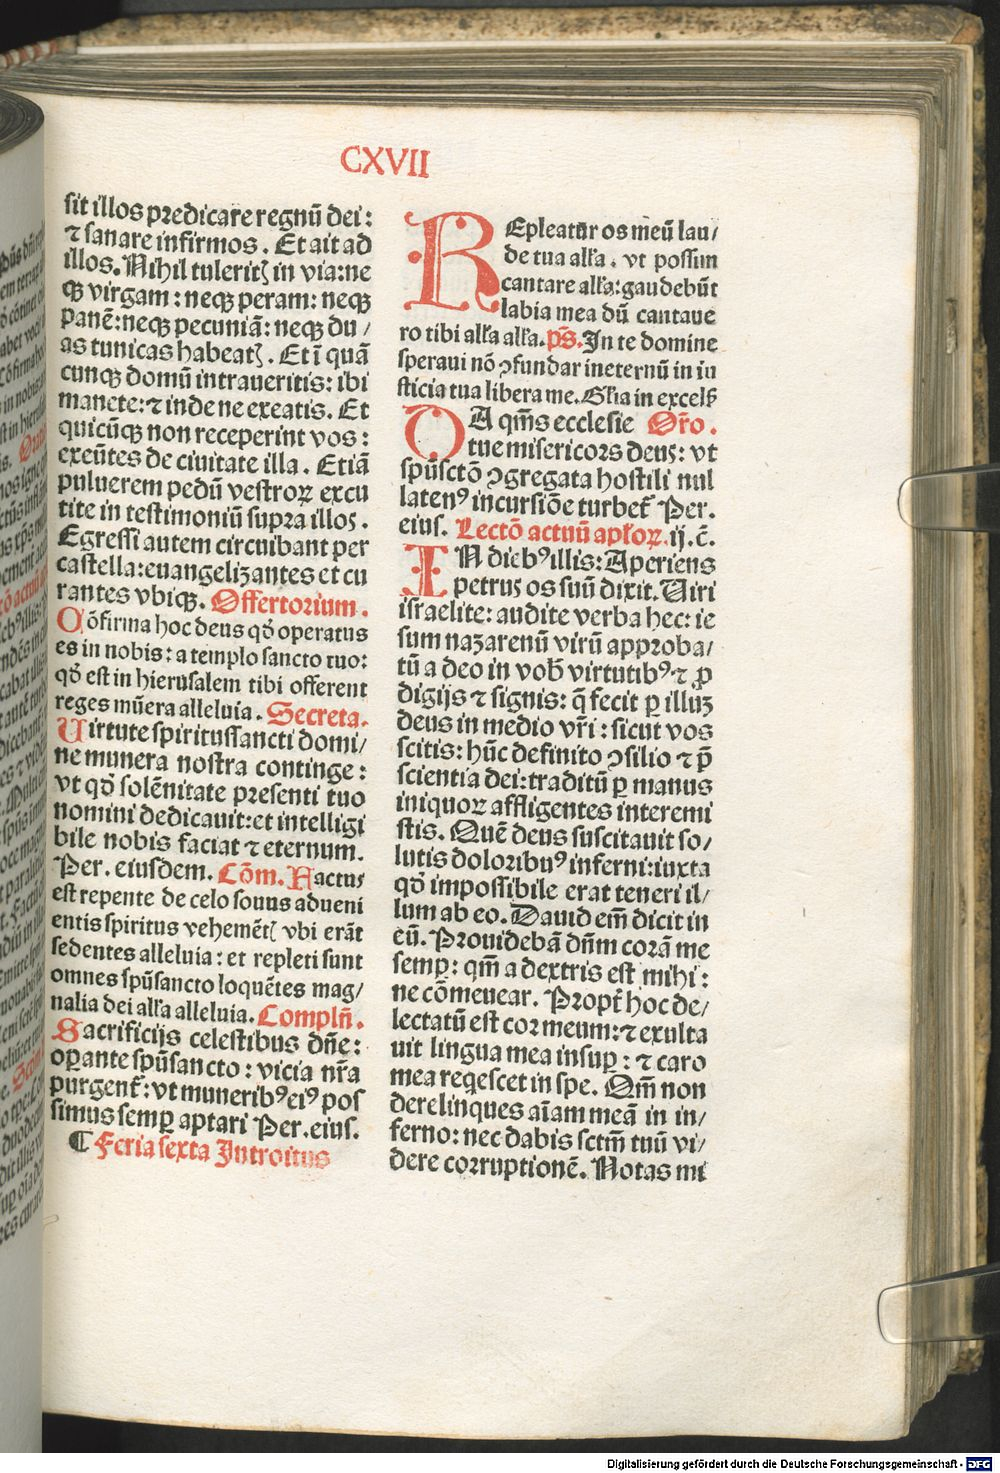 CXVII
sit illos predicare regnū dei:
⁊ sanare infirmos. Et ait ad
illos. Nihil tuleritꝭ in via: ne
qꝫ virgam: neqꝫ peram: neqꝫ
panē: neqꝫ pecuniā: neqꝫ du/
as tunicas habeatꝭ. Et ī quā
cunqꝫ domū intraueritis: ibi
manete: ⁊ inde ne exeatis. Et
quicūqꝫ non receperint vos:
exeūtes de ciuitate illa. Etiā
puluerem pedū vestroꝝ excu
tite in testimoniū supra illos.
Egressi autem circuibant per
castella: euangelizantes et cu
rantes vbiqꝫ. Offertorium.
Cōfirma hoc deus qđ operatus
es in nobis: a templo sancto tuo:
qđ est in hierusalem tibi offerent
reges mūera alleluia. Secreta.
Uirtute spiritussancti domi/
ne munera nostra continge:
vt qđ solēnitate presenti tuo
nomini dedicauit: et intelligi
bile nobis faciat ⁊ eternum.
Per. eiusdem. Cōm. Factus
est repente de celo sonus adueni
entis spiritus vehemētꝭ vbi erāt
sedentes alleluia: et repleti sunt
omnes spūsancto loquētes mag/
nalia dei alľa alleluia. Complñ.
Sacrificijs celestibus dñe:
oꝑante spūsancto: vicia nr̄a
purgent᷑: vt munerib⁹ ei⁹ pos
simus semꝑ aptari Per. eius.
¶ Feria sexta Introitus
REpleatur os meū lau/
de tua alľa. vt possun
cantare alľa: gaudebūt
labia mea dū cantaue
ro tibi alľa alľa. pš. In te domine
speraui nō ꝯfundar ineternū in iu
sticia tua libera me. Gľia in excelꝭ
DA qm̄s ecclesie Oro.
tue misericors deus: vt
spūsctō ꝯgregata hostili nul
laten⁹ incursiōe turbet᷑ Per.
eius. Lectō actuū apľoꝝ. ij. c̄.
IN dieb⁹ illis: Aperiens
petrus os suū dixit. Uiri
israelite: audite verba hec: ie
sum nazarenū virū approba/
tū a deo in vob̄ virtutib⁹ ⁊ ꝓ
digijs ⁊ signis: q̄ fecit ꝑ illuꝫ
deus in medio vr̄i: sicut vos
scitis: hūc definito ꝯsilio ⁊ p̄
scientia dei: traditū ꝑ manus
iniquoꝝ affligentes interemi
stis. Quē deus suscitauit so/
lutis doloribu⁹ inferni: iuxta
qđ impossibile erat teneri il/
lum ab eo. Dauid em̄ dicit in
eū. Prouidebā dñm corā me
semꝑ: qm̄ a dextris est mihi:
ne cōmouear. Propt᷑ hoc de/
lectatū est cor meum: ⁊ exulta
uit lingua mea insuꝑ: ⁊ caro
mea reqescet in spe. Qm̄ non
derelinques aīam meā in in/
ferno: nec dabis sctm̄ tuū vi/
dere corruptionē. Notas mi
Digitalisierung gefördert durch die Deutsche Forschungsgemeinschaft - DFG